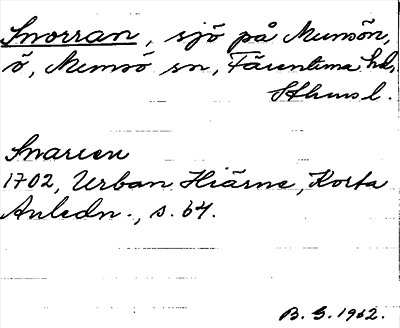 Snorran, sjö på Munsön,
ö, Munsö sn, Färentuna hd,
Sthms l.
Snareen
1702, Urban Hiärne, Korta
Anledn., s. 64.
B. G. 1962.